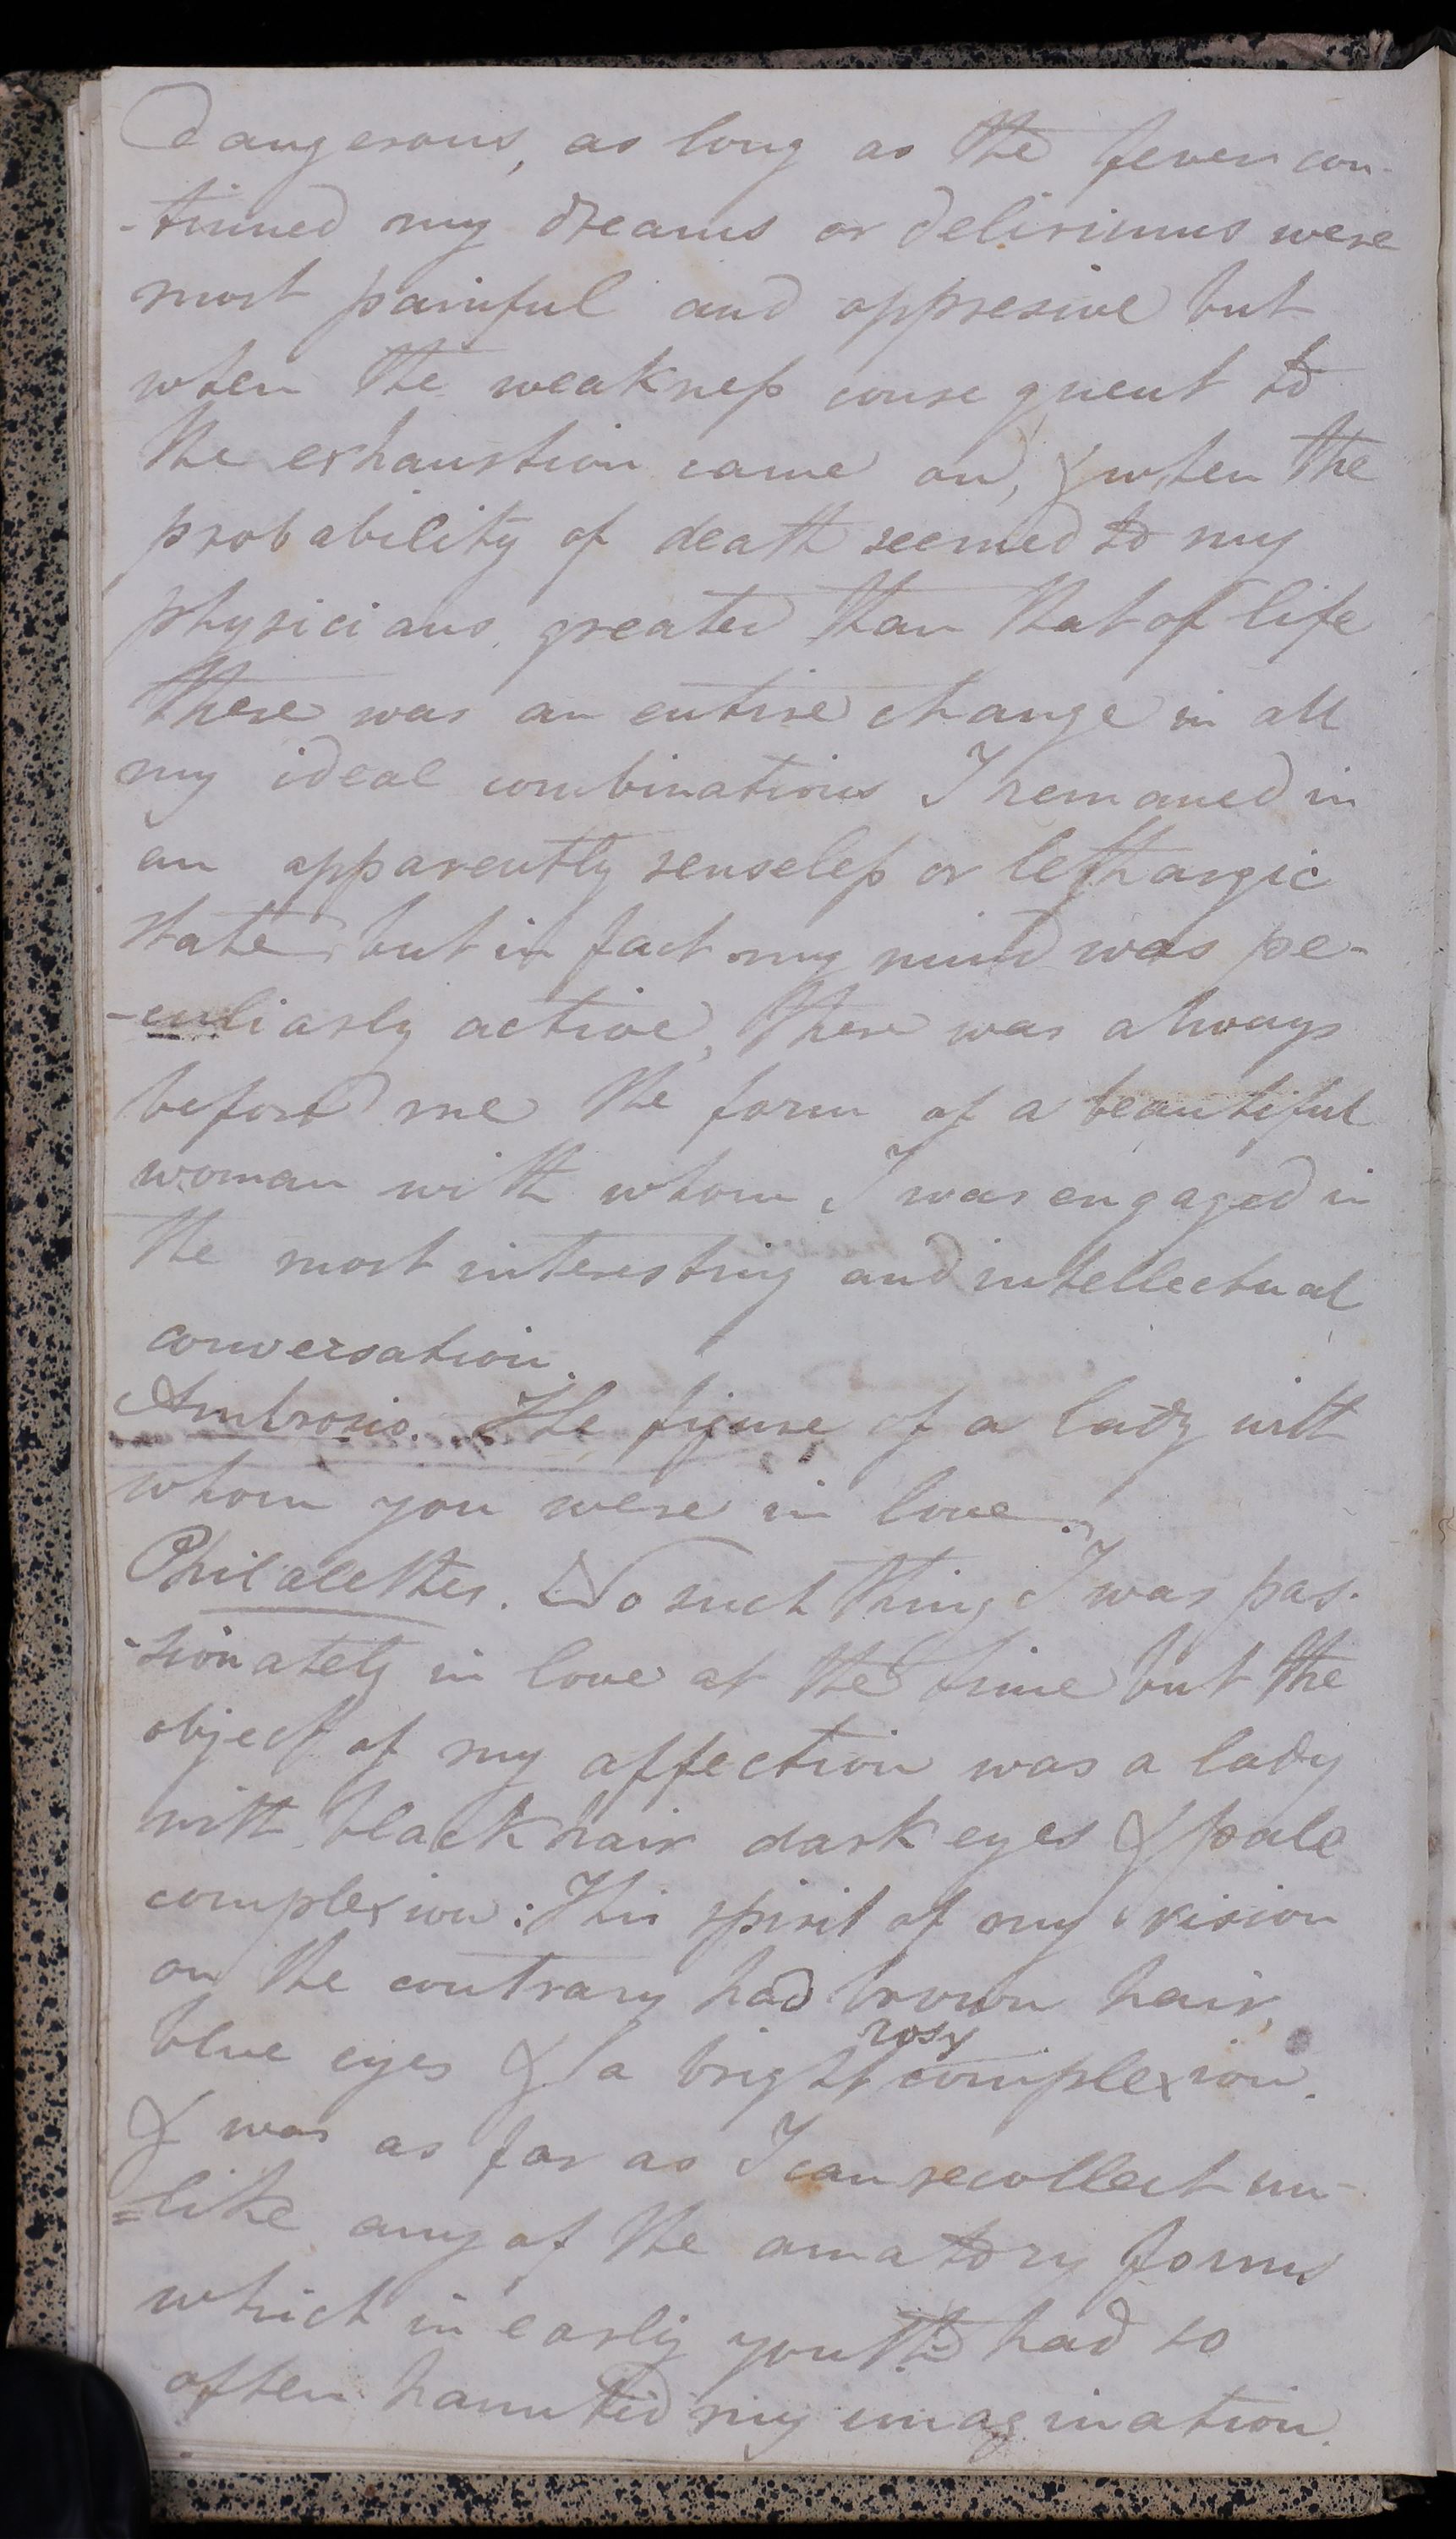 dangerous, as long as the fever con-
-tinued my dreams or deliriums were
most painful and oppresive but
when the weakness consequent to
the exhaustion came on, & when the
probability of death seemed to my
physicians greater than that of life
there was an entire change in all
my ideal combinations I remaned in
an apparently senseless or lethargic
state but in fact my mind was pe-
-culiarly active, there was always
before me the form of a beautiful
woman with whom I was engaged in
the most interesting and intellectual
conversation.
Ambrosio. The figure of a lady with
whom you were in love.
Philalethes. No such thing I was pas-
-sionately in love at the time but the
object of my affection was a lady
with black hair dark eyes & pale
complexion: This spirit of my vision
on the contrary had brown hair,
blue eyes & a bright rosy complexion.
& was as far as I can recollect un-
=like any of the amatory forms
which in early youth had so
often haunted my imagination.